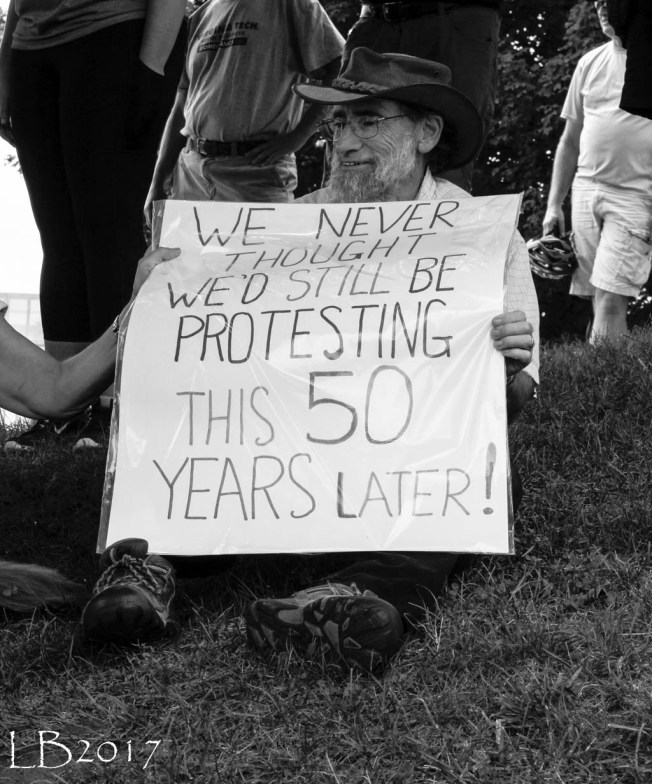 TECH.
WE NEVER
THOUGHT
WE'D STILL BE
PROTESTING
THIS 50
YEARS LATER!
LB2017